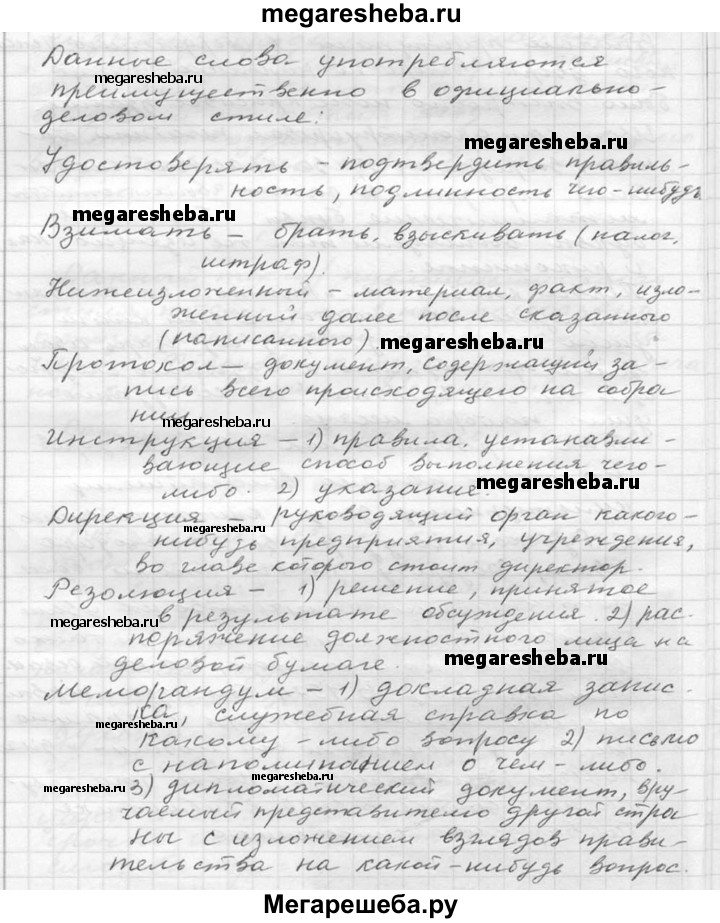 megaresheba.ru
Данные слова употребляются
megaresheba.ru
преимущественно в официально-
деловом стиле:
megaresheba.ru
Удостоверять - подтвердить правиль-
ность, подлинность чего-нибудь
megaresheba.ru
Взимать - брать, взыскивать (налог,
штраф).
Нижеизложенный - материал, факт, изло-
женный далее после сказанного
(написанного).
megaresheba.ru
Протокол - документ, содержащий за-
пись всего происходящего на собра
нии
megaresheba.ru
Инструкция - 1) правила, устанавли-
вающие способ выполнения чего-
либо. 2) указание.
megaresheba.ru
Дирекция - руководящий орган какого-
megaresheba.ru
нибудь предприятия, учреждения,
во главе которого стоит директор.
Резолюция - 1) решение, принятое
megaresheba.ru
в результате обсуждения. 2) рас-
поряжение должностного лица на
деловой бумаге.
megaresheba.ru
Меморандум - 1) докладная запис-
ка, служебная справка по
megaresheba.ru
какому-либо вопросу 2) письмо
с напоминанием о чем-либо.
megaresheba.ru
megaresheba.ru
3) дипломатический документ, вру
чаемый представителю другой стра
ны с изложением взглядов прави-
тельства на какой-нибудь вопрос.
Мегарешеба.ру